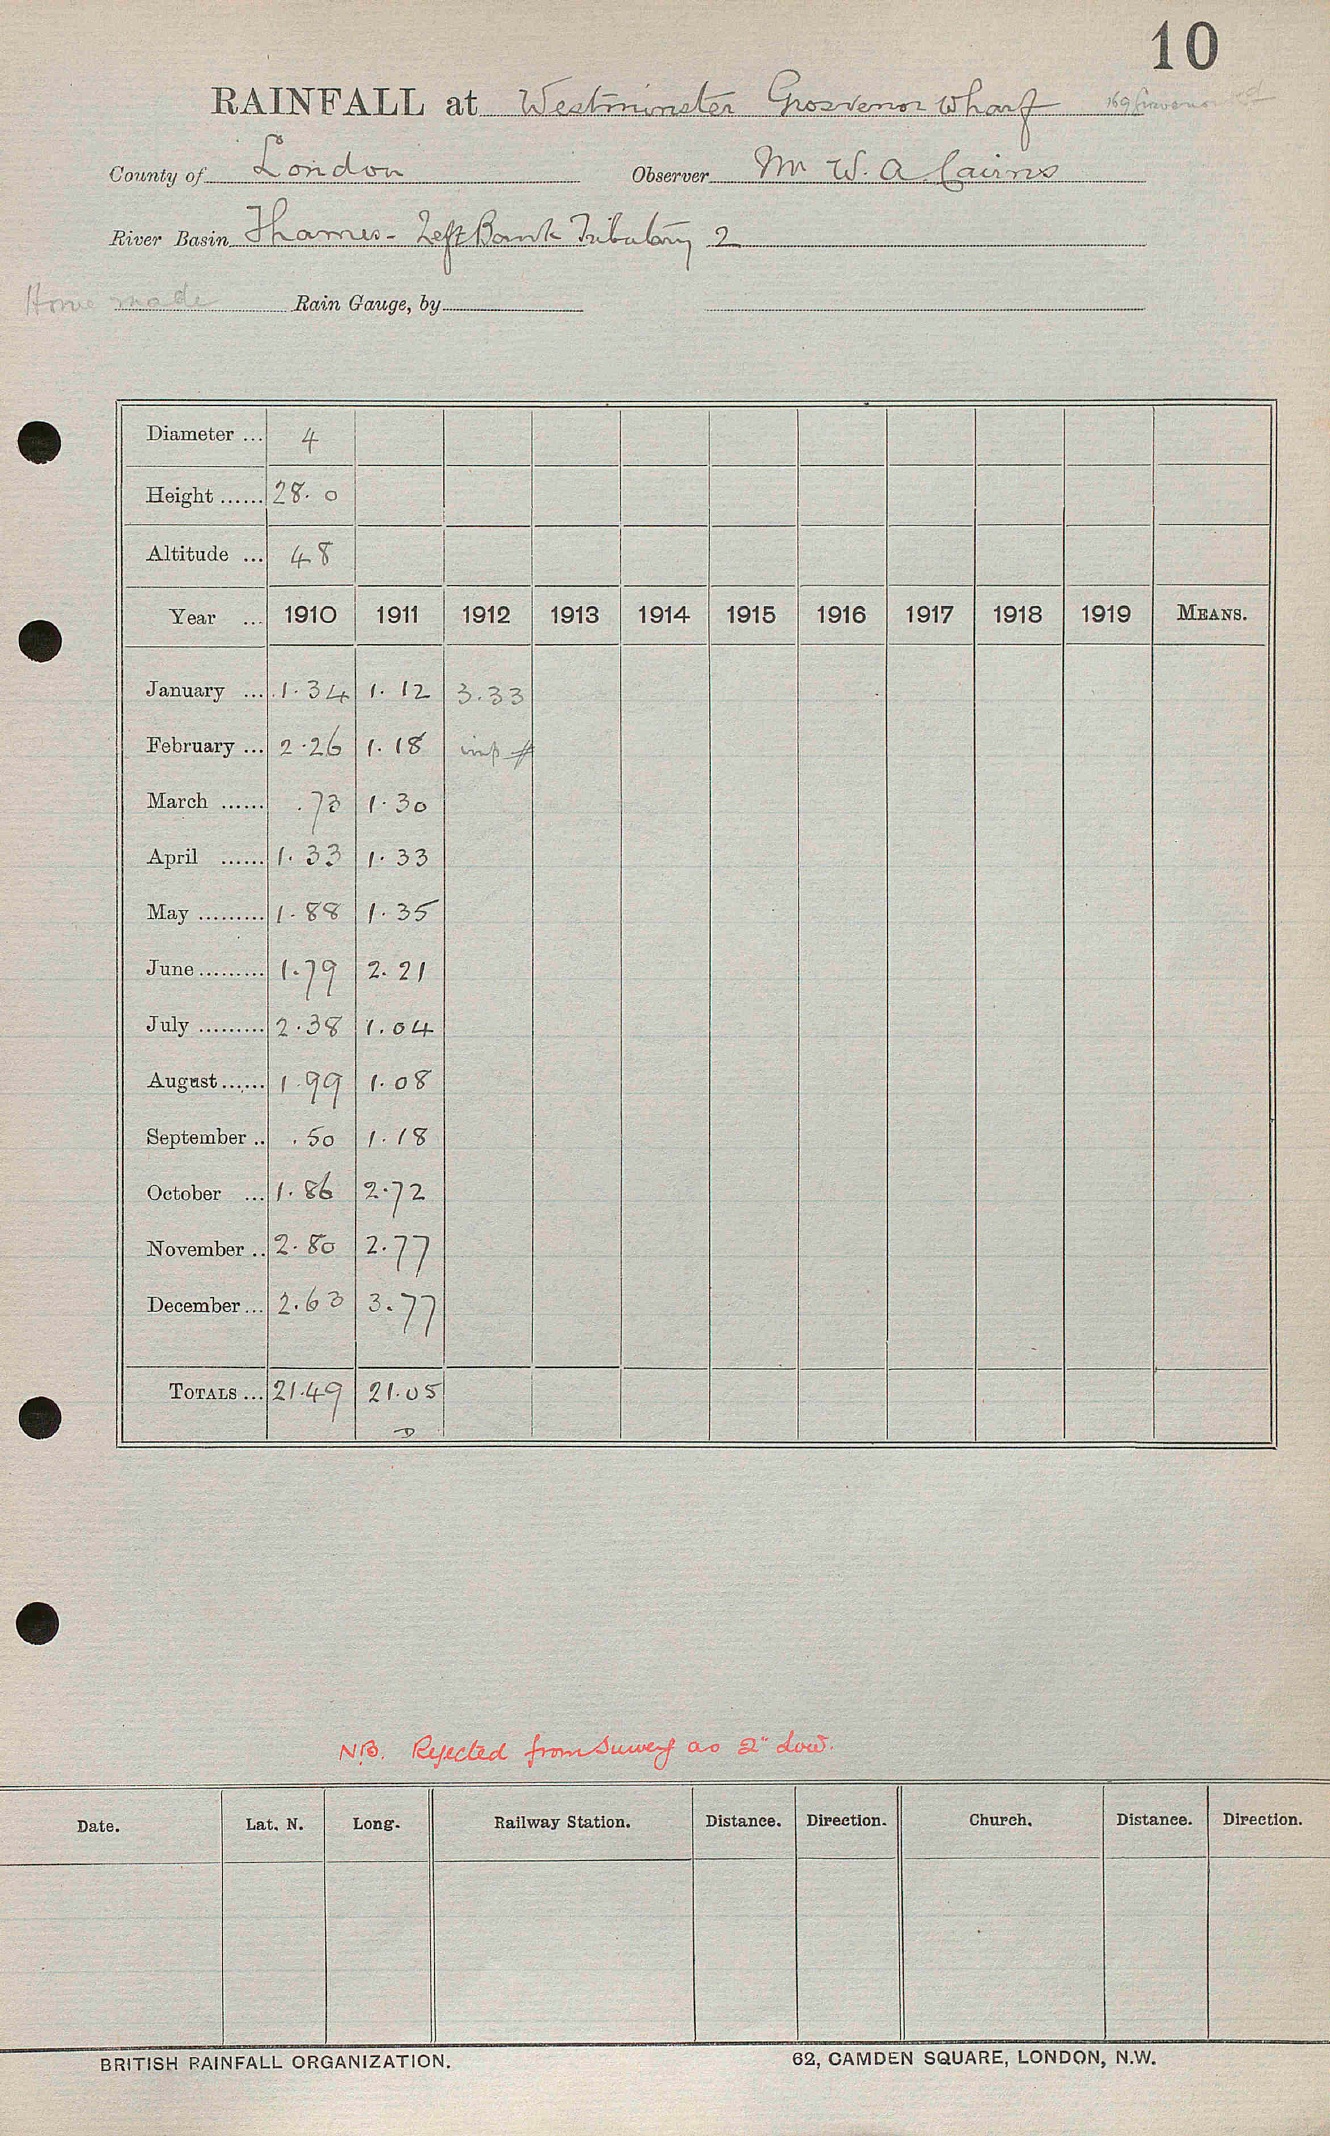 10
RAINFALL at Westminster Grosvenor Wharf 169 Grosvenor Rd
County of London Observer Mr W. A. Cairns
River Basin Thames - Left Bank Tributary 2
Home made Rain Gauge, by
Diameter ... 4
Height ...... 28.0
Altitude ... 48
Year ... 1910 1911 1912 1913 1914 1915 1916 1917 1918 1919 MEANS.
January ... 1.34 1.12 3.33
February ... 2.26 1.18 imp
March ...... .73 1.30
April ...... 1.33 1.33
May ......... 1.88 1.35
June ......... 1.79 2.21
July ......... 2.38 1.04
August ...... 1.99 1.08
September .. .50 1.18
October ... 1.86 2.72
November .. 2.80 2.77
December ... 2.63 3.77
TOTALS ... 21.49 21.05
D
N.B. Rejected from Survey as 2" low.
Date. Lat. N. Long. Railway Station. Distance. Direction. Church. Distance. Direction.
BRITISH RAINFALL ORGANIZATION. 62, CAMDEN SQUARE, LONDON, N.W.